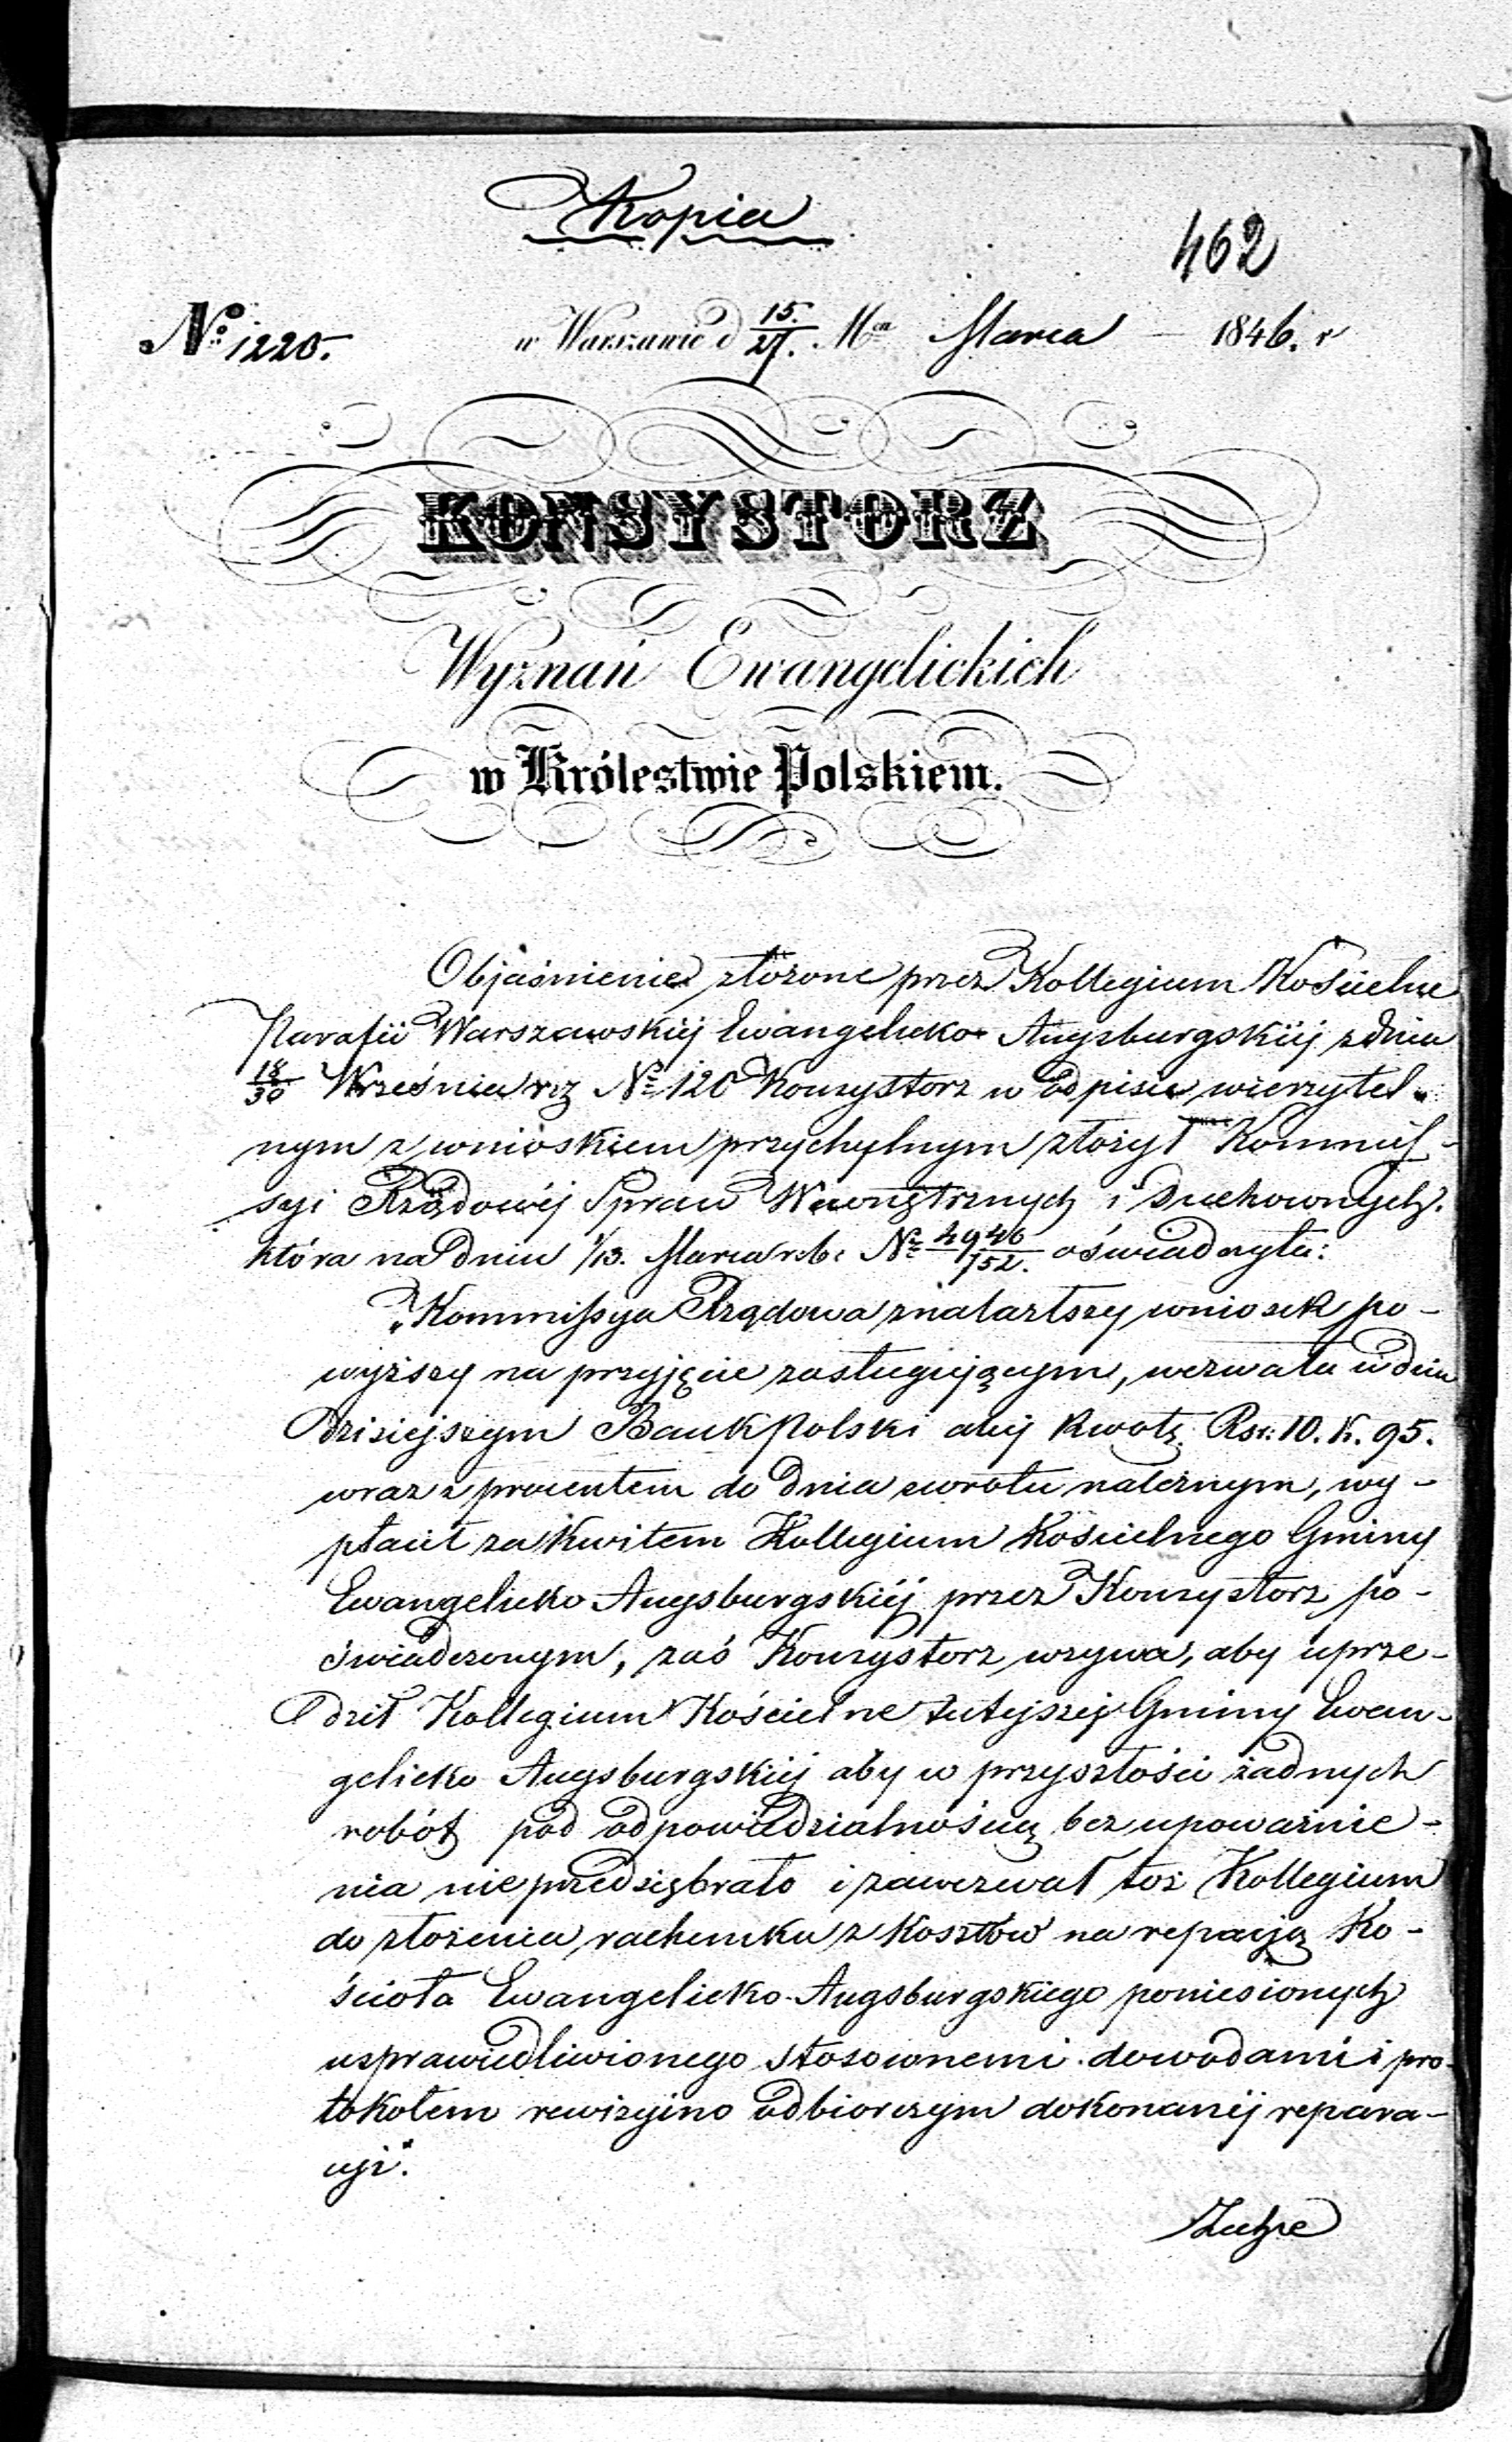 Kopia
462
№ 1220.
w Warszawie d 15/27. Mca Marca 1846. r
KONSYSTORZ
Wyznań Ewangelickich
w Królestwie Polskiem.
Objaśnienie złożone przez Kollegium Kościelne
Parafii Warszawskiej Ewangelicko Augsburgskiéj z dnia
18/30 Września r. z. № 120 Konsystorz w odpisie wierzytel-
nym z wnioskiem przychylnym złożył Kommis-
syi Rządowéj Spraw Wewnętrznych i Duchownych.
która na dniu 1/13. Marca r. b. № 4946/752. oświadczyła:
"Kommissya Rządowa znalazłszy wniosek po-
wyższy na przyjęcie zasługującym, wezwała w dniu
dzisiejszym Bank Polski aby kwotę Rsr: 10. k. 95.
wraz z procentem do dnia zwrotu należnym, wy-
płacił za kwitem Kollegium Kościelnego Gminy
Ewangelicko Augsburgskiéj przez Konsystorz po-
świadczonym, zaś Konsystorz wzywa, aby uprze-
dził Kollegium Kościelne tutejszéj Gminy Ewan-
gelicko Augsburgskiéj aby w przyszłości żadnych
robót pod odpowiedzialnością bez upoważnie-
nia nie przedsiębrało i zawezwał toż Kollegium
do złożenia rachunku z kosztów na repacją Ko-
ścioła Ewangelicko-Augsburgskiego poniesionych
usprawiedliwionego stosownemi dowodami i pro-
tokołem rewizyino odbiorczym dokonanéj repara-
cyi."